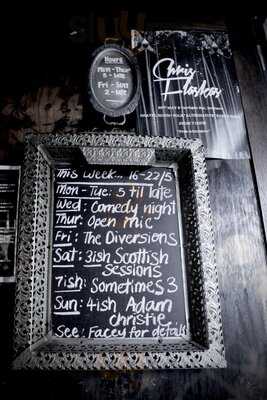 Hours
Mon - Thur
5 - late
Fri - Sun
2 - late
Chris
This Week... 16-22/5
Mon - Tue: 5 til late
Wed: Comedy night
Thur: Open mic
Fri: The Diversions
Sat: 3ish Scottish
Sessions
7ish: Sometimes 3
Sun: 4ish Adam
christie
See: Facey for details